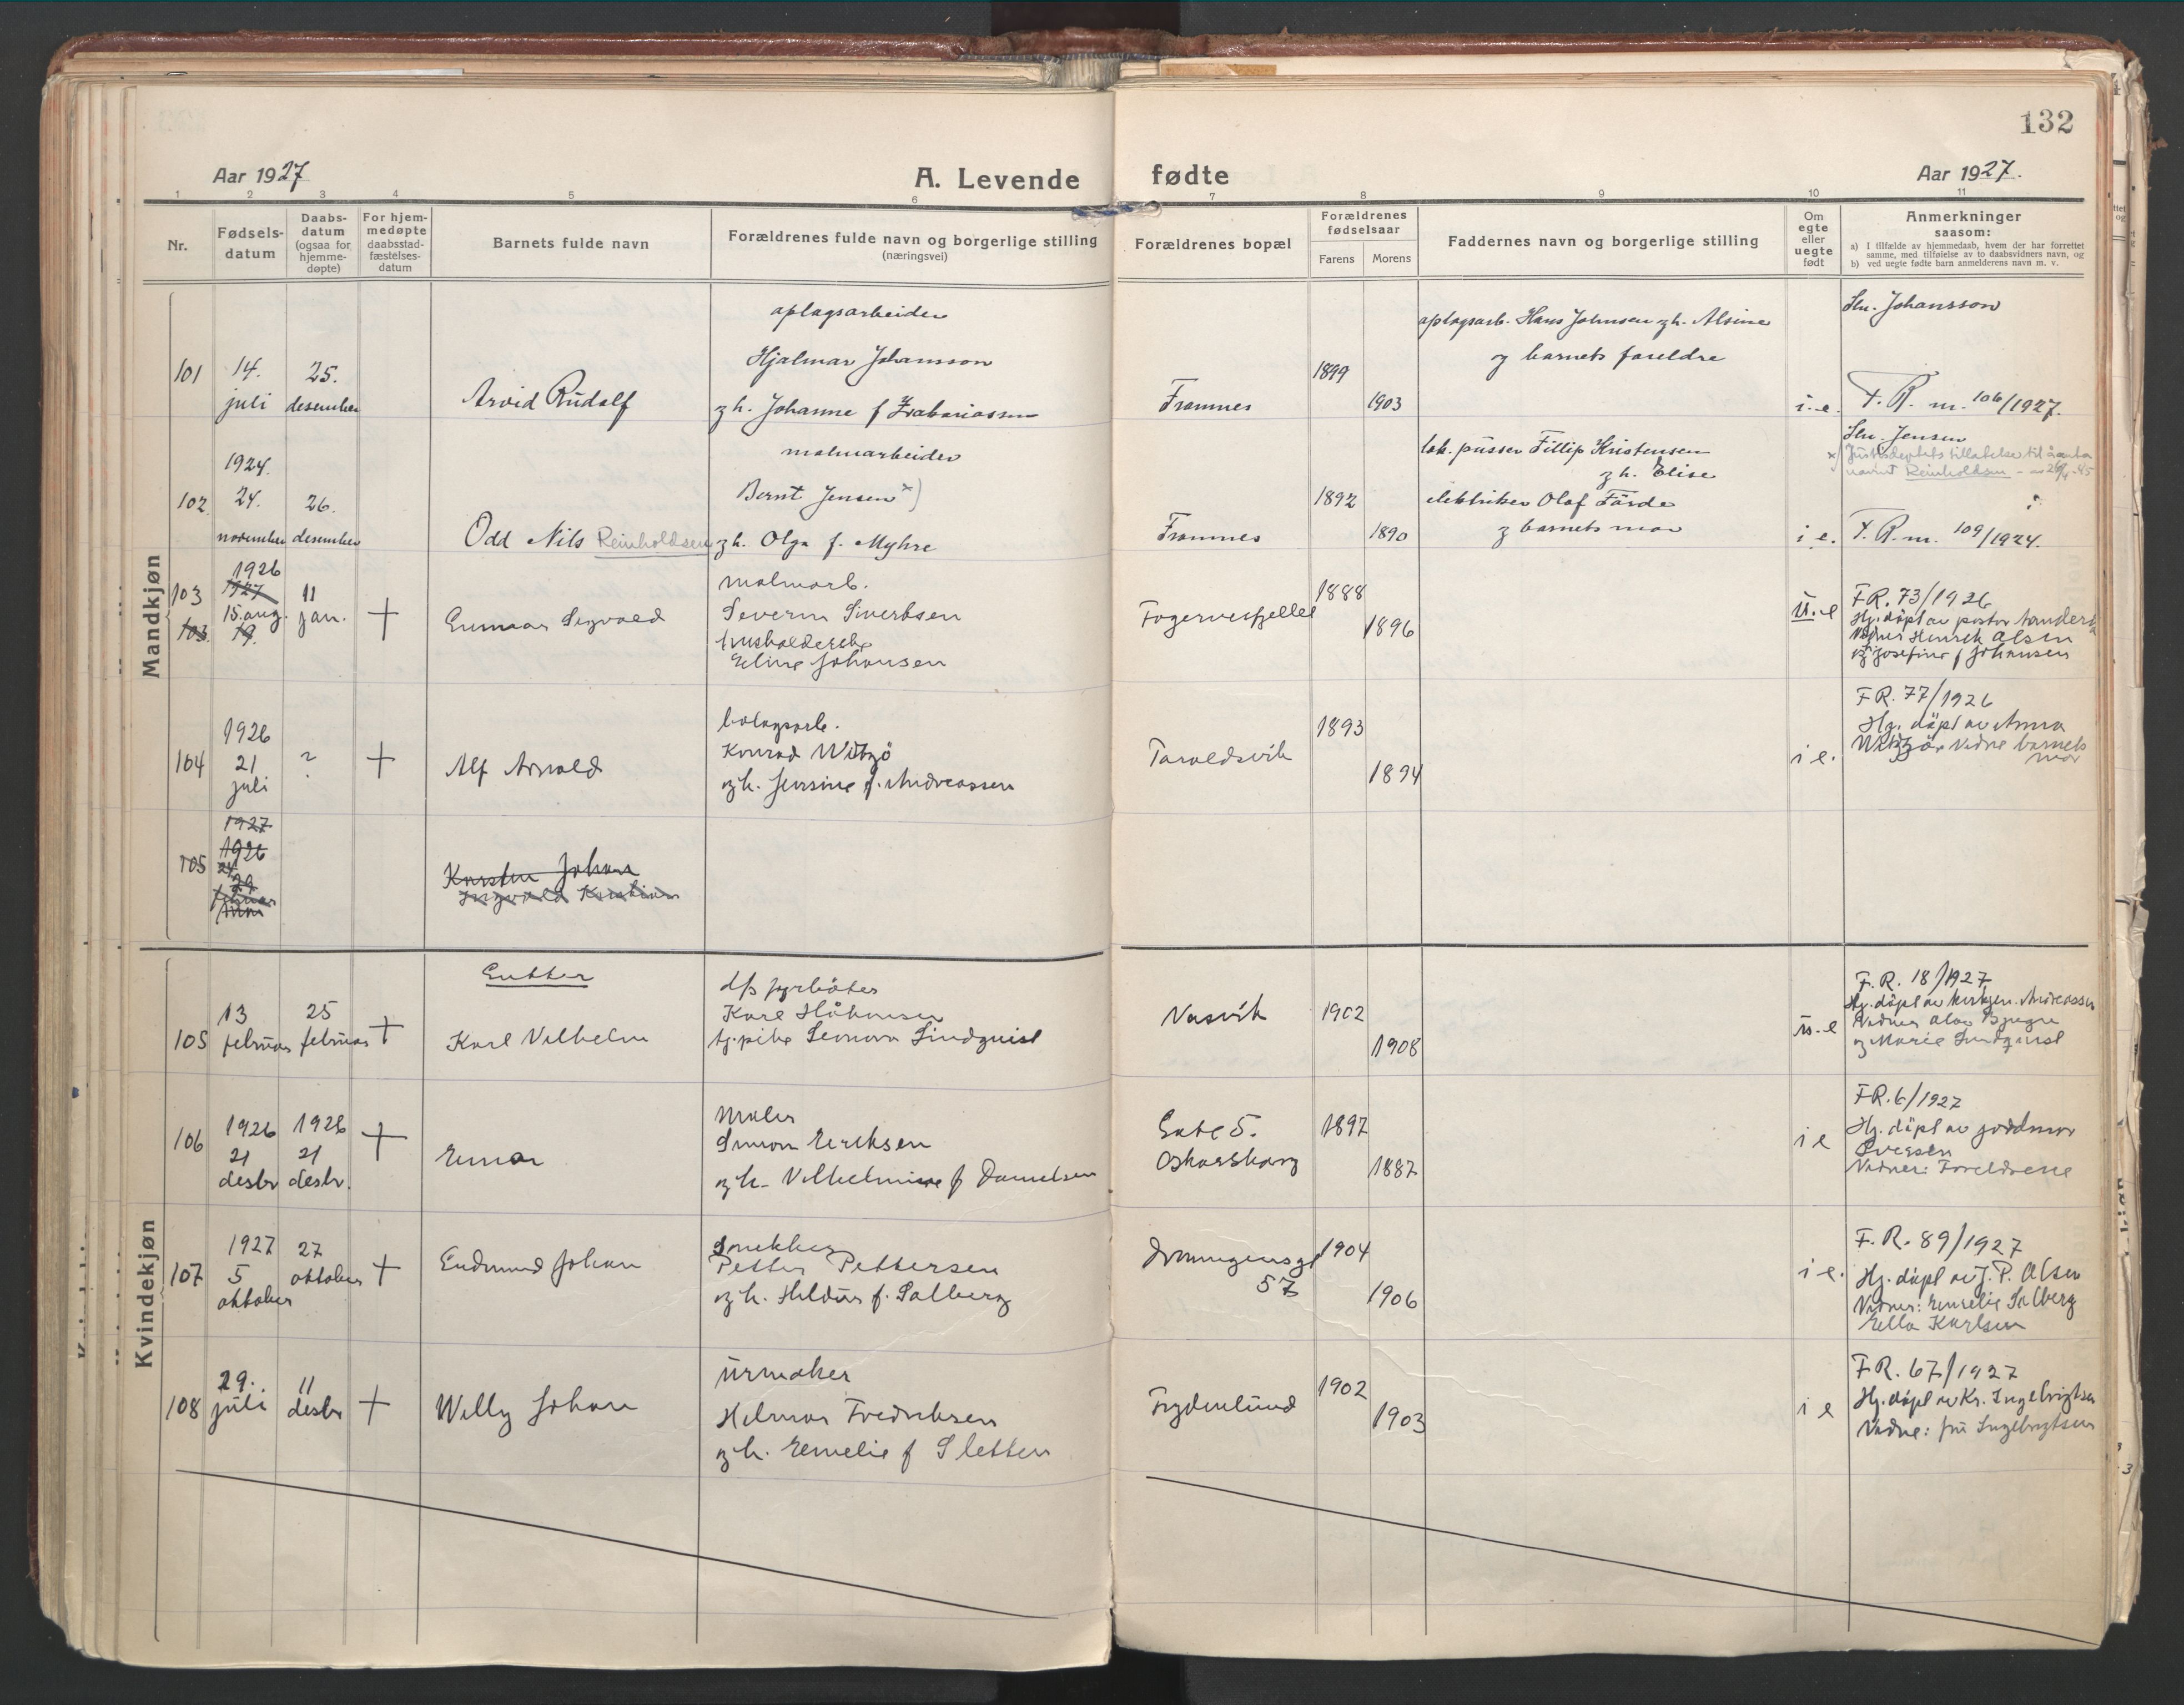 132
Aar 1927
A. Levende fødte
Aar 1927.
1 2 3 4 5 6 7 8 9 10 11
Nr.
Fødsels-
datum
Daabs-
datum
(ogsaa for
hjemme-
døpte)
For hjem-
medøpte
daabsstad-
fæstelses-
datum
Barnets fulde navn
Forældrenes fulde navn og borgerlige stilling
(næringsvei)
Forældrenes bopæl
Forældrenes
fødselsaar
Farens Morens
Faddernes navn og borgerlige stilling
Om
egte
eller
uegte
født
Anmerkninger
saasom:
a) I tilfælde av hjemmedaab, hvem der har forrettet
samme, med tilføielse av to daabsvidners navn, og
b) ved uegte fødte barn anmelderens navn m. v.
Mandkjøn
101
14.
juli
25.
desember
Arvid Rudolf
oplagsarbeider
Hjalmar Johansson
g h. Johanne f Zakariassen
Framnes
1899
1903
oplagsarb. Hans Johnsen g h. Alsine
og barnets foreldre
i. e.
Hr. Johansson
F. R. nr. 106/1927.
102
1924.
24.
november
26.
desember
Odd Nils Reinholdsen
malmarbeider
Bernt Jensen x)
g h. Olga f. Myhre
Framnes
1892
1890
lok. pusser Fillip Kristensen
g h. Elise
elektriker Olaf Førde
g barnets mor
i e.
Hr. Jensen
x) Justisdeptets tillatelse til å anta
navnet Reinholdsen
F. R. nr. 109/1924.
103
103.
1926
1927
15. aug.
19.
11
jan.
+
Gunnar Sigvald
malmarb.
Severin Sivertsen
husholderske
Eline Johansen
Fagernesfjellet
1888
1896
u. e
FR. 73/1926
Hj. døpt av pastor
Henrik Olsen
og Josefine f Johansen
104
1926
21
juli
?
+
Alf Arnold
bolagsarb.
Konrad Witzø
og h. Jensine f. Andreassen
Taraldsvik
1893
1894
i e.
FR. 77/1926
Hj. døpt av Anna
Witzø Vidne barnets
mor
105
1927
1926
24
29
februar
Karsten Johan
Ingvald Kristian
Kvindekjøn
Gutter
105
13
februar
25
februar
+
Karl Vilhelm
d/s fyrbøter
Karl Håkonsen
tj. pike Leonora Lindquist
Vasvik
1902
1908
u. e
F. R. 18/1927
Hj. døpt av kirkesn. Andreassen
Vidner Olav
og Marie Lindquist
106
1926
21
desbr
1926
21
desbr.
+
Einar
Maler
Simon Eriksen
og h. Vilhelmine f Danielsen
Gate 5.
Oskarsborg
1897
1887
i e
FR. 6/1927
Hj. døpt av jordmor
Iversen
Vidner: Foreldrene
107
1927
5
oktober
27
oktober
+
Gudmund Johan
Snekker
Petter Pettersen
og h. Hildur f. Solberg
Dronningensgt
57
1904
1906
i e.
F. R. 89/1927
Hj. døpt av J. P. Olsen
Vidner: Emelie Solberg
Ella Karlsen
108
29.
juli
11
desbr
+
Willy Johan
Urmaker
Hilmar Fredriksen
g h. Emelie f Sletten
Frydenlund
1902
1903
i e
FR. 67/1927
Hj. døpt av Kr. Ingebrigtsen
Vidne: fru Ingebrigtsen